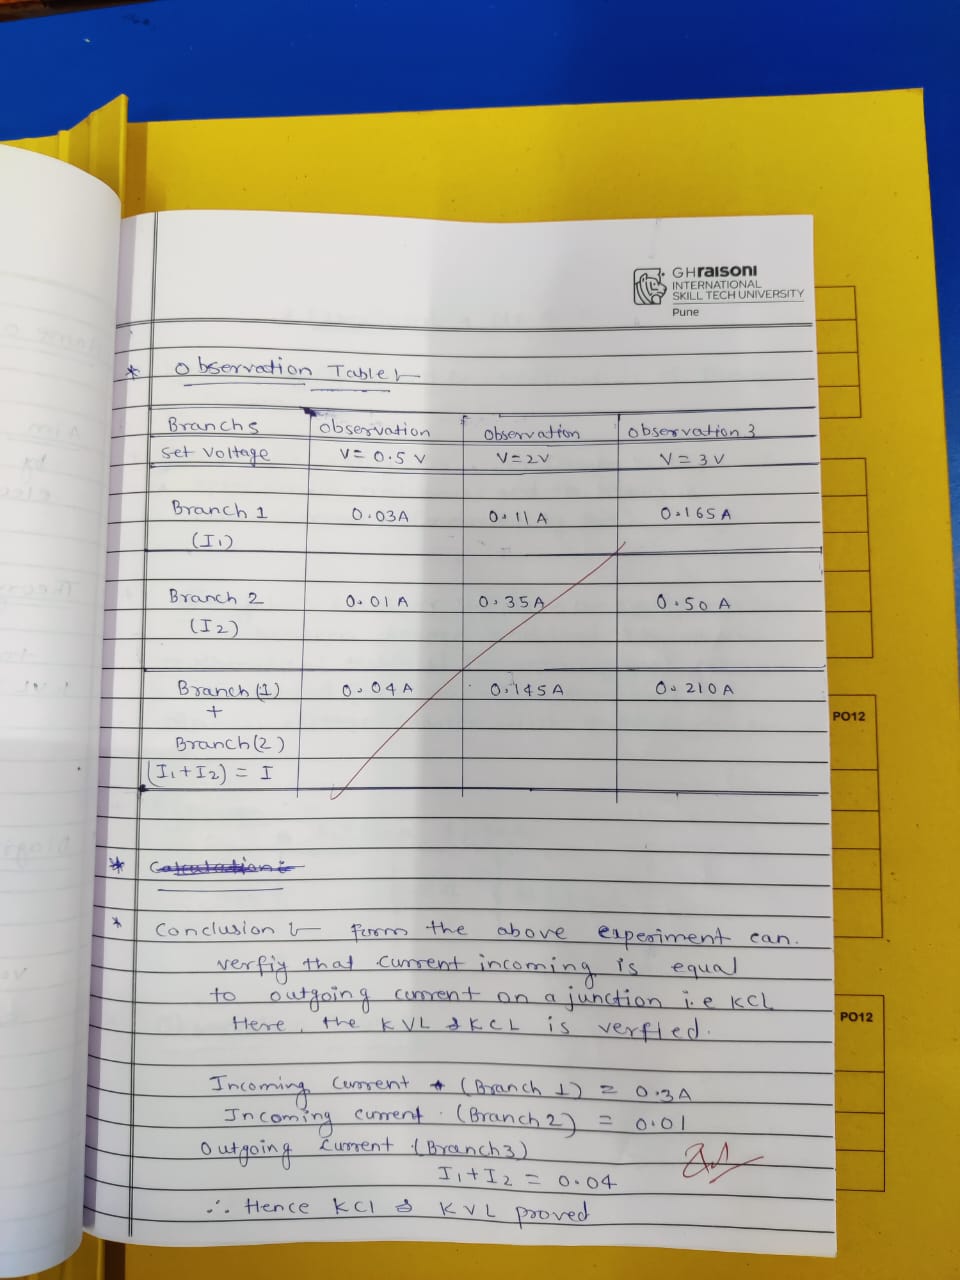 GHraisoni
INTERNATIONAL
SKILL TECH UNIVERSITY
Pune
* Observation Table :-
Branchs observation observation observation 3
set voltage V= 0.5 V V=2V V=3V
Branch 1 0.03A 0.11 A 0.165 A
(I1)
Branch 2 0.01 A 0.35A 0.50 A
(I2)
Branch (1) 0.04 A 0.145A 0.210A
+
Branch (2)
(I1+I2) = I
*
* Conclusion :- form the above experiment can.
verfiy that current incoming is equal
to outgoing current on a junction i.e KCL
Here, the KVL & KCL is verfied.
Incoming current (Branch 1) = 0.3A
Incoming current. (Branch 2) = 0.01
Outgoing current (Branch 3)
I1+I2 = 0.04
∴ Hence KCl & KVL proved
PO12
PO12